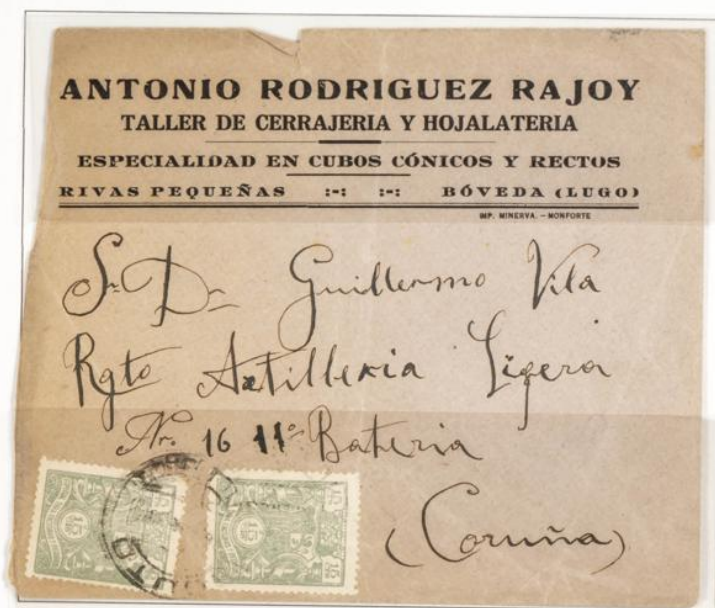 ANTONIO RODRIGUEZ RAJOY
TALLER DE CERRAJERIA Y HOJALATERIA
ESPECIALIDAD EN CUBOS CÓNICOS Y RECTOS
RIVAS PEQUEÑAS :-: :-: BÓVEDA (LUGO)
IMP. MINERVA. - MONFORTE
Sr. Dn Guillermo Vila
Rgto Artilleria Ligera
Nr. 16 11ª Bateria
(Coruña)
15
15